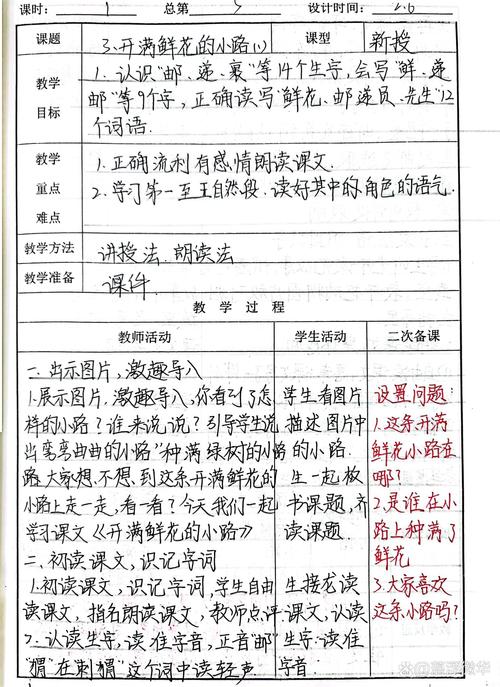 课时： 1 总第 5 设计时间： 2.6
课题 3.开满鲜花的小路(1) 课型 新授
教学目标
1.认识“邮、递、裹”等14个生字,会写“鲜、递
邮”等9个字,正确读写“鲜花、邮递员、先生”12
个词语.
教学重点难点
1.正确流利有感情朗读课文.
2.学习第一至五自然段.读好其中的角色的语气.
教学方法 讲授法.朗读法
教学准备 课件.
教 学 过 程
教师活动 学生活动 二次备课
一.出示图片,激趣导入
1.展示图片.激趣导入,你看到了怎
样的小路?谁来说说?引导学生说
出弯弯曲曲的小路”种满绿树的小
路.大家想不想到这条开满鲜花的
小路上走一走,看一看?今天我们一起
学习课文《开满鲜花的小路》
二.初读课文,识记字词
1.初读课文,识记字词,学生自由
读课文,指名朗读课文,教师点评
2.认读生字,读准字音,正音“邮”
“猬”在“刺猬”这个词中读轻声
学生看图片
描述图片中
的小路.
生一起板
书课题,齐
读课题.
生接龙读
课文,认读
生字.读准
字音.
设置问题:
1.这条开满
鲜花小路在
哪?
2.是谁在小
路上种满了
鲜花
3.大家喜欢
这条小路吗?